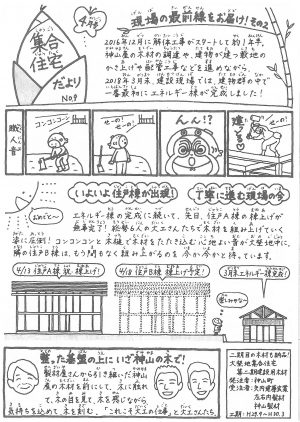 集合住宅だより
No.9
4月号
現場の最前線をお届け! その2
2016年12月に解体工事がスタートして約1年半。
神山産の木材の調達や、建物が建つ敷地の
かさ上げや配管工事などを進めながら、
2018年3月末、建設現場では建物群の中で
一番最初にエネルギー棟が完成しました!
職人音
コンコンコン
せーの!
せーの!
んん!?
いよいよ住戸棟が出現!
丁寧に進む現場の今
エネルギー棟の完成に続いて、先日、住戸A棟の棟上げが
無事完了! 総勢6人の大工さんたちで木材を組み上げていく
姿に圧倒! コンコンコンと木槌で木材をたたき込む心地よい音が大埜地中に。
隣の住戸B棟は、もう間もなく組み上がるのを今か今かと待っています。
4/13 住戸A棟 祝 棟上げ!
4/18 住戸B棟 棟上げ予定!
3月末エネルギー棟完成!
整った基盤の上にいざ神山の木で!
製材屋さんから引き継いだ神山
産の木材を前にして、木に触れ
て、木の目を見て、木を感じながら
気持ちを込めて木を刻む。「これこそ大工の仕事」と大工さんたち。
二期目の木材も納品!
大埜地集合住宅
第二期建設用木材
発注者:神山町
受注者:
神山製材